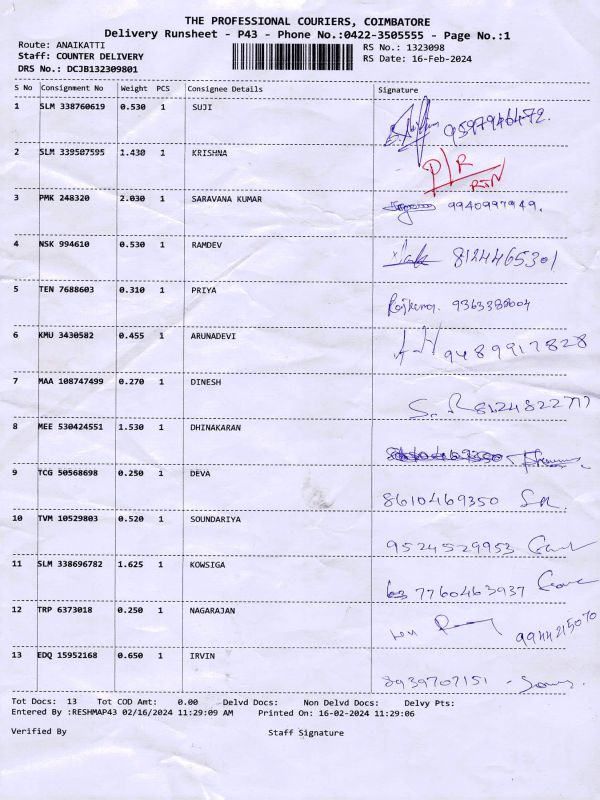 THE PROFESSIONAL COURIERS, COIMBATORE
Delivery Runsheet - P43 - Phone No.:0422-3505555 - Page No.:1
Route: ANAIKATTI RS No.: 1323098
Staff: COUNTER DELIVERY RS Date: 16-Feb-2024
DRS No.: DCJB132309801
S No Consignment No Weight PCS Consignee Details Signature
1 SLM 338760619 0.530 1 SUJI
9597946472.
2 SLM 339507595 1.430 1 KRISHNA
P/R
RTN
3 PMK 248320 2.030 1 SARAVANA KUMAR
9940997949.
4 NSK 994610 0.530 1 RAMDEV
8124465301
5 TEN 7688603 0.310 1 PRIYA
Rajkumar. 9363388004
6 KMU 3430582 0.455 1 ARUNADEVI
9489917828
7 MAA 108747499 0.270 1 DINESH
S. R 8124822777
8 MEE 530424551 1.530 1 DHINAKARAN
9 TCG 50568698 0.250 1 DEVA
8610469350
10 TVM 10529803 0.520 1 SOUNDARIYA
9524529953
11 SLM 338696782 1.625 1 KOWSIGA
7760463937
12 TRP 6373018 0.250 1 NAGARAJAN
9944215070
13 EDQ 15952168 0.650 1 IRVIN
8939707151
Tot Docs: 13 Tot COD Amt: 0.00 Delvd Docs: Non Delvd Docs: Delvy Pts:
Entered By :RESHMAP43 02/16/2024 11:29:09 AM Printed On: 16-02-2024 11:29:06
Verified By Staff Signature